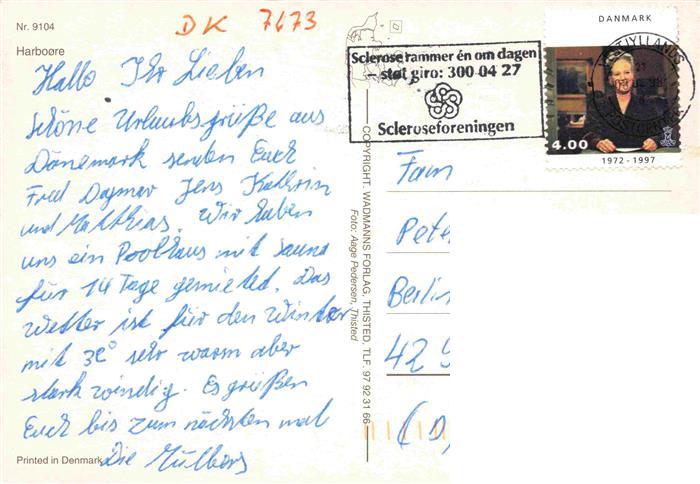 Nr. 9104
DK 7673
Harboøre
Hallo Ihr Lieben
schöne Urlaubsgrüße aus
Dänemark senden Euch
Fred Dagmar Jens Kathrin
und Matthias. Wir haben
uns ein Poolhaus mit Sauna
für 14 Tage gemietet. Das
Wetter ist für den Winter
mit 3C° sehr warm aber
stark windig. Es grüßen
Euch bis zum nächsten mal
Die
Printed in Denmark
COPYRIGHT. WADMANNS FORLAG, THISTED, TLF. 97 92 31 66
Foto: Aage Pedersen, Thisted
Sclerose rammer én om dagen
– støt giro: 300 04 27
Scleroseforeningen
DANMARK
4.00
1972 - 1997
Fam
Pete
Berlin
42
(D